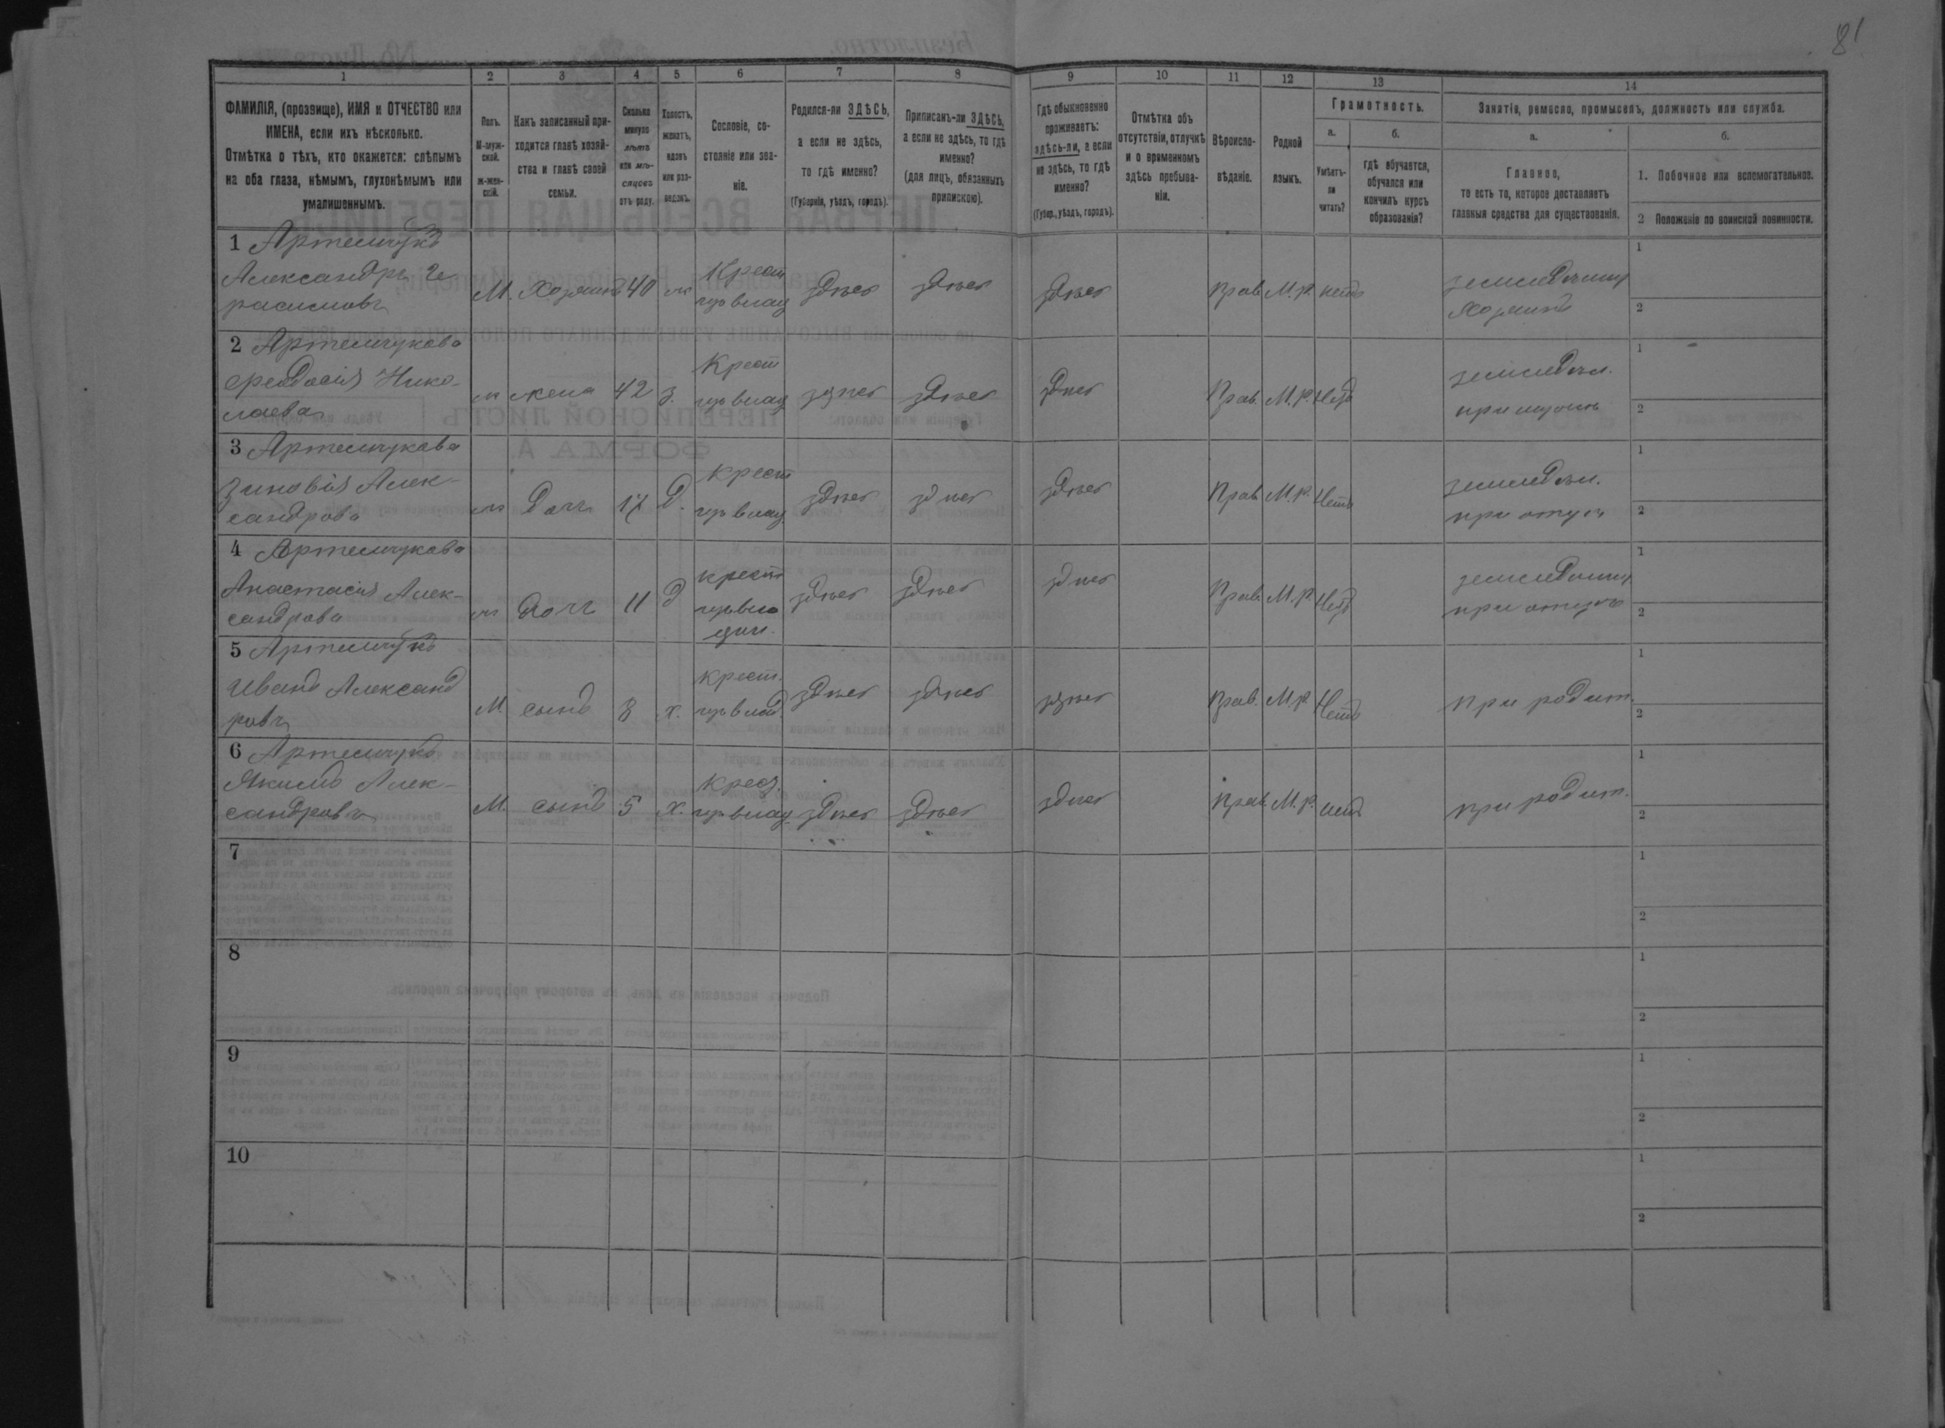 81
1 2 3 4 5 6 7 8 9 10 11 12 13 14
ФАМИЛІЯ, (прозвище), ИМЯ и ОТЧЕСТВО или
ИМЕНА, если ихъ нѣсколько.
Отмѣтка о тѣхъ, кто окажется: слѣпымъ
на оба глаза, нѣмымъ, глухонѣмымъ или
умалишеннымъ.
Полъ.
М-муж-
ской.
ж-жен-
скій.
Какъ записанный при-
ходится главѣ хозяй-
ства и главѣ своей
семьи.
Сколько
минуло
лѣтъ
или мѣ-
сяцевъ
отъ роду.
Холостъ,
женатъ,
вдовъ
или раз-
веденъ.
Сословіе, со-
стояніе или зва-
ніе.
Родился-ли ЗДѢСЬ,
а если не здѣсь,
то гдѣ именно?
(Губернія, уѣздъ, городъ).
Приписанъ-ли ЗДѢСЬ,
а если не здѣсь, то гдѣ
именно?
(для лицъ, обязанныхъ
припискою).
Гдѣ обыкновенно
проживаетъ:
здѣсь-ли, а если
не здѣсь, то гдѣ
именно?
(Губер., уѣздъ, городъ).
Отмѣтка объ
отсутствіи, отлучкѣ
и о временномъ
здѣсь пребыва-
ніи.
Вѣроиспо-
вѣданіе.
Родной
языкъ.
Грамотность.
а.
Умѣетъ-
ли
читать?
б.
гдѣ обучается,
обучался или
кончилъ курсъ
образованія?
Занятія, ремесло, промыселъ, должность или служба.
а.
Главное,
то есть то, которое доставляетъ
главныя средства для существованія.
б.
1. Побочное или вспомогательное.
2 Положеніе по воинской повинности.
1 Артемчукъ
Александръ Ге
расимовъ
М. Хозяинъ 40
Крест
здѣсь здѣсь здѣсь Прав. М.р. нетъ
Хозяинъ
1
2
2 Артемчукова
Феодосія Нико-
лаева
жена 42
Крест
здѣсь здѣсь здѣсь Прав. М.р. Нетъ
1
2
3 Артемчукова
Зиновія Алек-
сандрова
Дочь Д.
Крест
здѣсь здѣсь здѣсь Прав. М.р. Нетъ
1
2
4 Артемчукова
Анастасія Алек-
сандрова
Дочь 11 д
крест
здѣсь здѣсь здѣсь Прав. М.р. Нетъ
1
2
5 Артемчукъ
Иванъ Александ
ровъ
М. сынъ 8 х.
крест.
здѣсь здѣсь здѣсь Прав. М.р. Нетъ
при родит.
1
2
6 Артемчукъ
Якимъ Алек-
сандровъ
М. сынъ 5 х.
здѣсь здѣсь здѣсь Прав. М.р. нетъ
при родит.
1
2
7
1
2
8
1
2
9
1
2
10
1
2